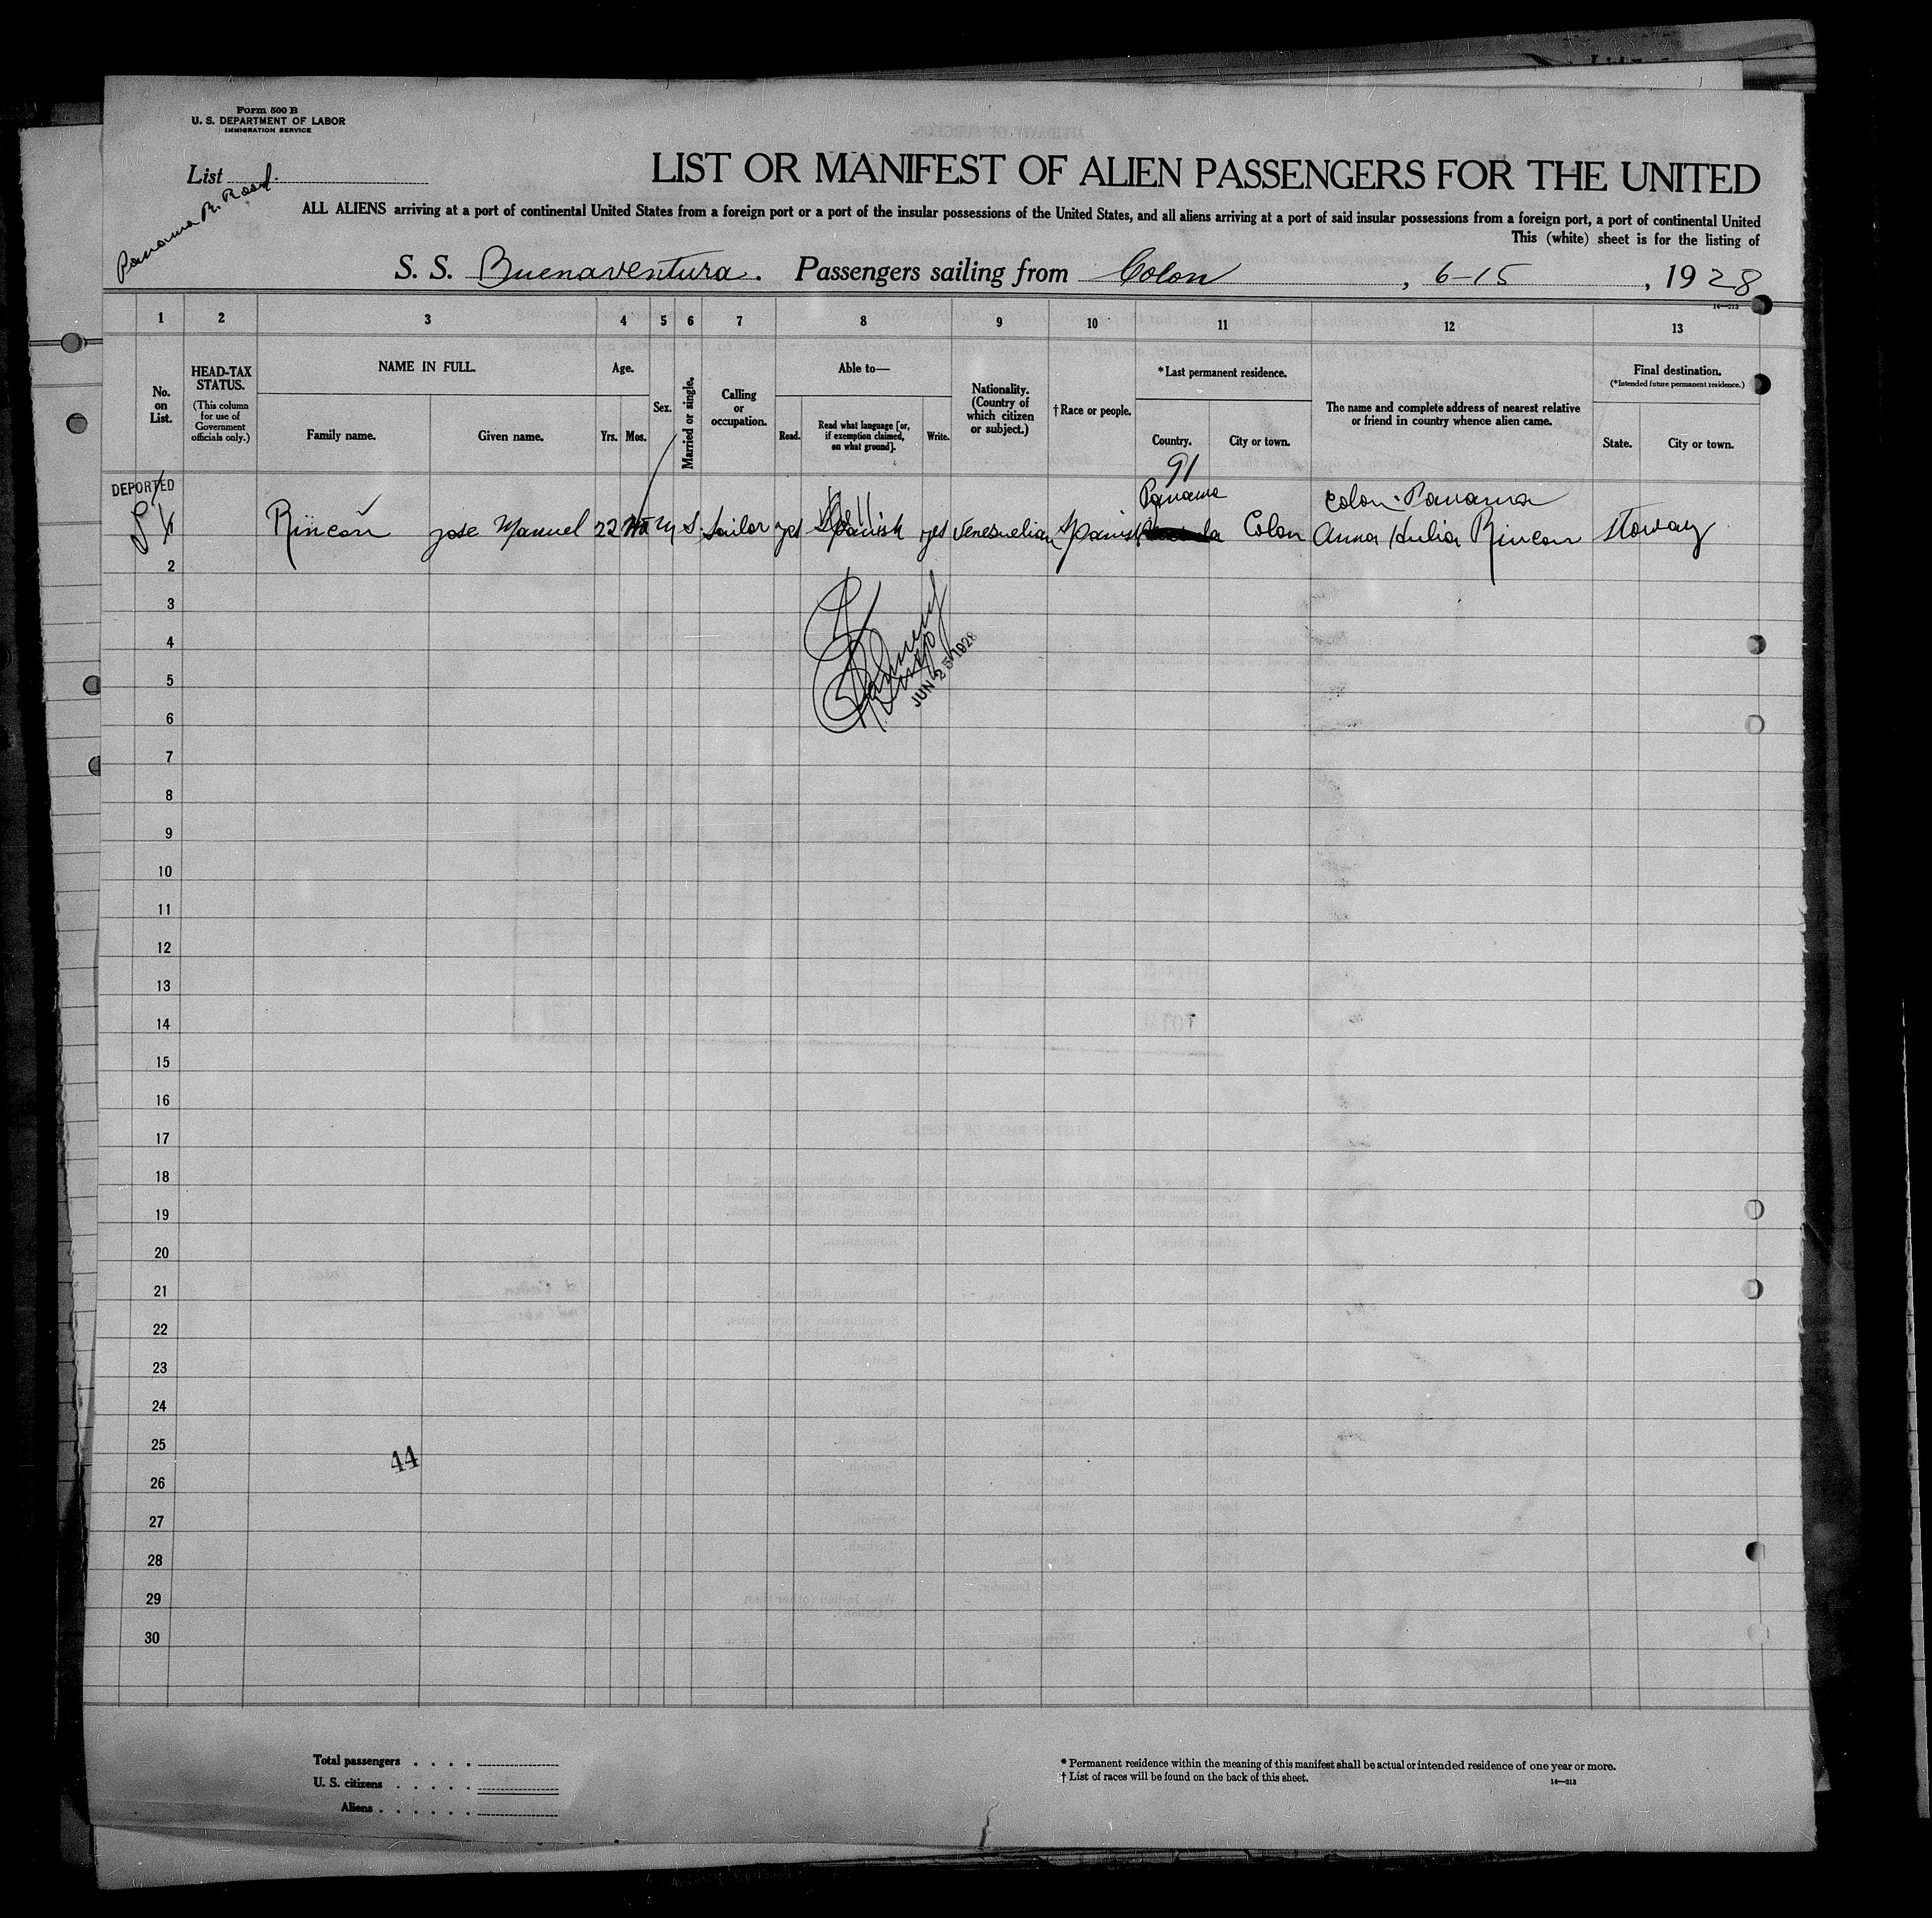 Form 500 B
U. S. DEPARTMENT OF LABOR
IMMIGRATION SERVICE
List
Panama R. Road.
LIST OR MANIFEST OF ALIEN PASSENGERS FOR THE UNITED
ALL ALIENS arriving at a port of continental United States from a foreign port or a port of the insular possessions of the United States, and all aliens arriving at a port of said insular possessions from a foreign port, a port of continental United
This (white) sheet is for the listing of
S. S. Buenaventura. Passengers sailing from Colon, 6-15, 1928
14—213
1 2 3 4 5 6 7 8 9 10 11 12 13
No. on List.
HEAD-TAX STATUS.
(This column for use of Government officials only.)
NAME IN FULL.
Family name. Given name.
Age.
Yrs. Mos.
Sex.
Married or single.
Calling or occupation.
Able to—
Read. Read what language [or, if exemption claimed, on what ground]. Write.
Nationality. (Country of which citizen or subject.)
†Race or people.
*Last permanent residence.
Country. City or town.
The name and complete address of nearest relative or friend in country whence alien came.
Final destination.
(*Intended future permanent residence.)
State. City or town.
91
DEPORTED
Panama Colon. Panama
1 Rincon jose Manuel 22 M S. Sailor yes Spanish yes Venesuelian Spanish Colon Anna Rincon stoway
2
3
4
5
JUN 25 1928
6
7
8
9
10
11
12
13
14
15
16
17
18
19
20
21
22
23
24
25
44
26
27
28
29
30
Total passengers
U. S. citizens
Aliens
* Permanent residence within the meaning of this manifest shall be actual or intended residence of one year or more.
† List of races will be found on the back of this sheet.
14—213